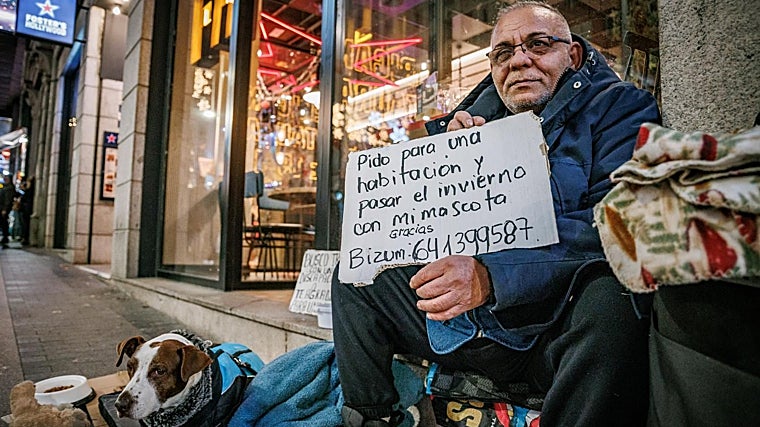 FOSTER'S
HOLLYWOOD
Pido para una
habitación y
pasar el invierno
con mi mascota
Gracias
Bizum: 641399587.
BUSCO